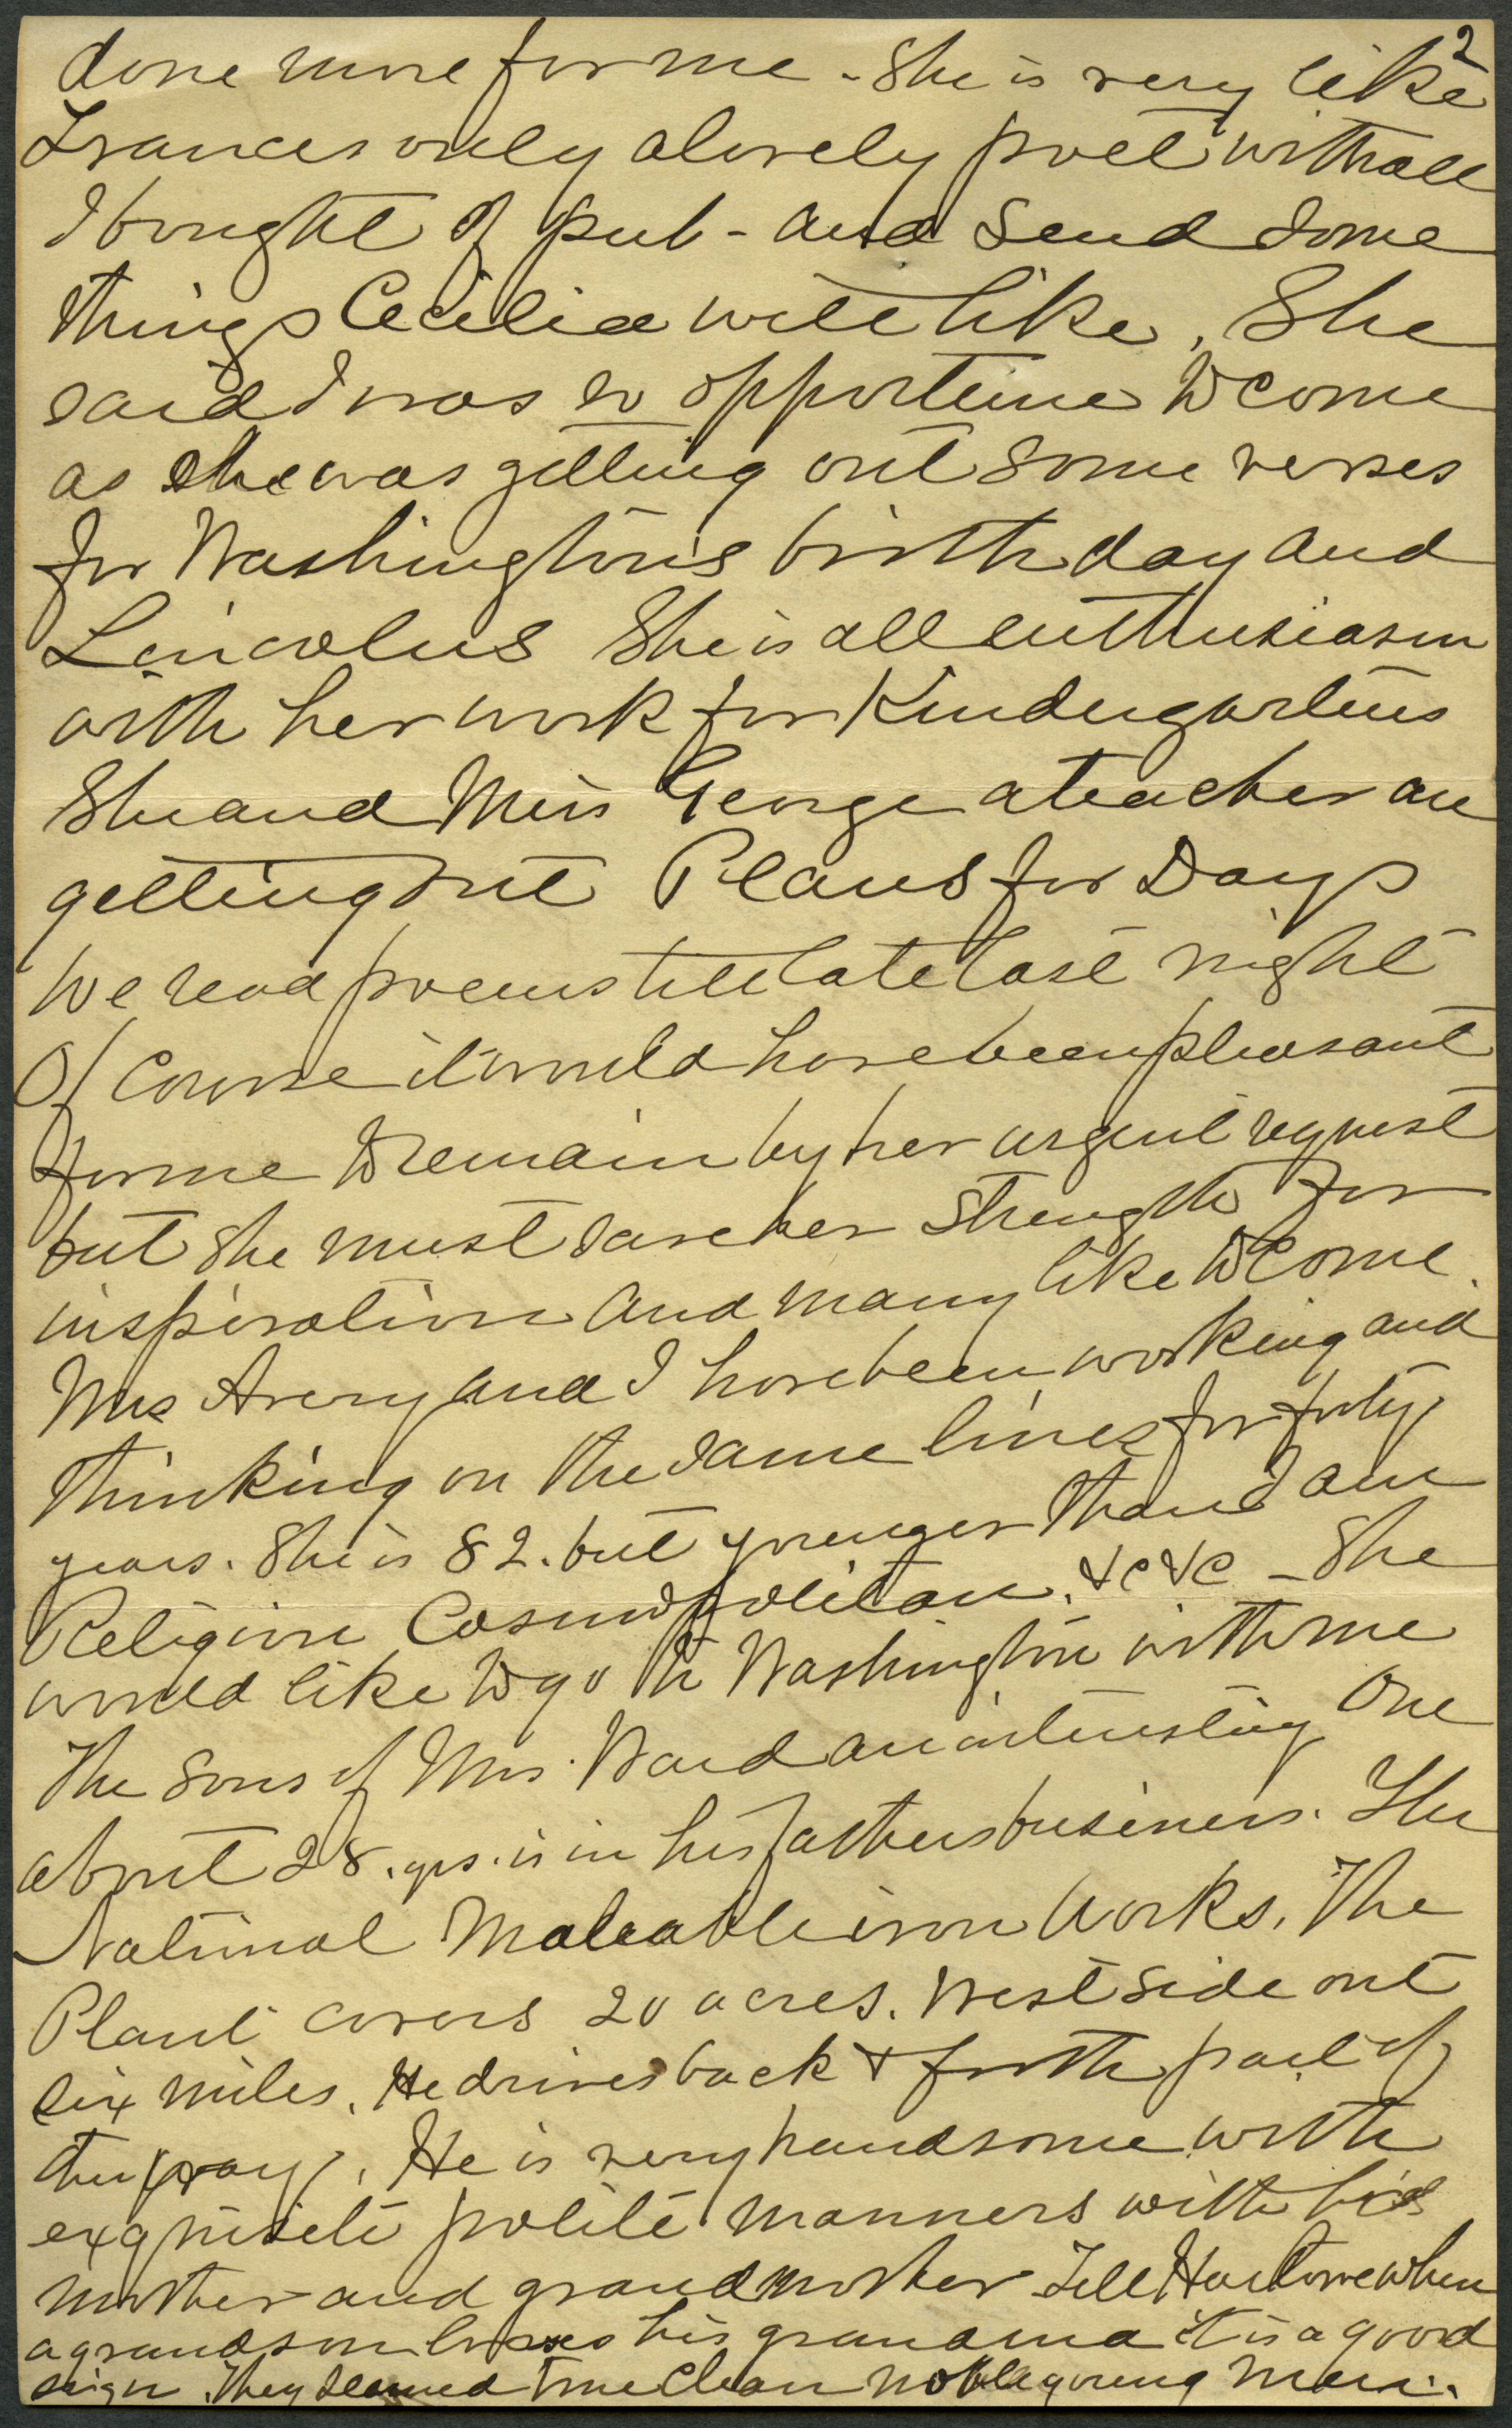 2
done more for me - She is very like
Frances only a lovely poet withall
I bought of pub - and send some
things Cecilia will like, She
said I was so opportune to come
as she was getting out some verses
for Washington's birthday and
Lincolns She is all enthusiasm
with her work for Kindergartens
She and Miss George a teacher are
getting out Plans for Days
We read poems till late last night
Of Course it would have been pleasant
for me to remain by her urgent request
but she must save her strength for
inspiration and many like to come.
Mrs Avery and I have been working and
thinking on the same lines for forty
years. She is 82. but younger than I am
Religion Cosmopolitan. &c &c - She
would like to go to Washington with me
The sons of Mrs. Ward an interesting one
about 28. yrs. is in his fathers business. The
National Maleable iron Works. The
Plant covers 20 acres. West side out
six miles. He drives back & forth part of
the way. He is very handsome with
exquisite polite manners with his
mother and grandmother Tell when
a grandson his grandma it is a good
sign. They seemed true clean noble young men.